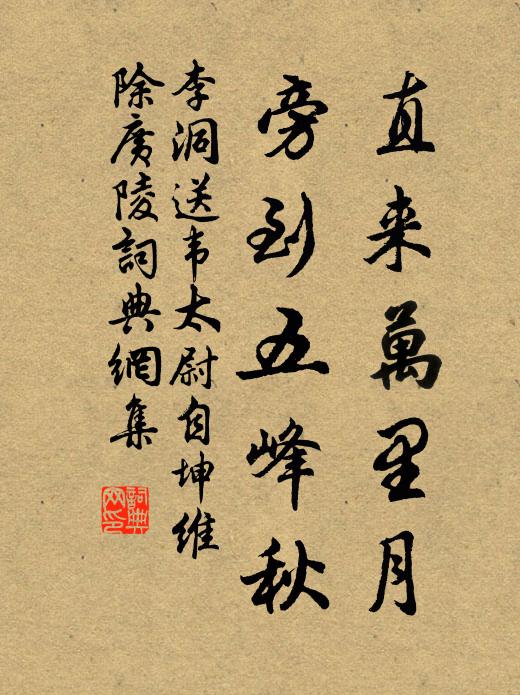 直来萬里月
旁到五峰秋
李洞送韦太尉自坤維
除廣陵詞典網集
詞典
网印